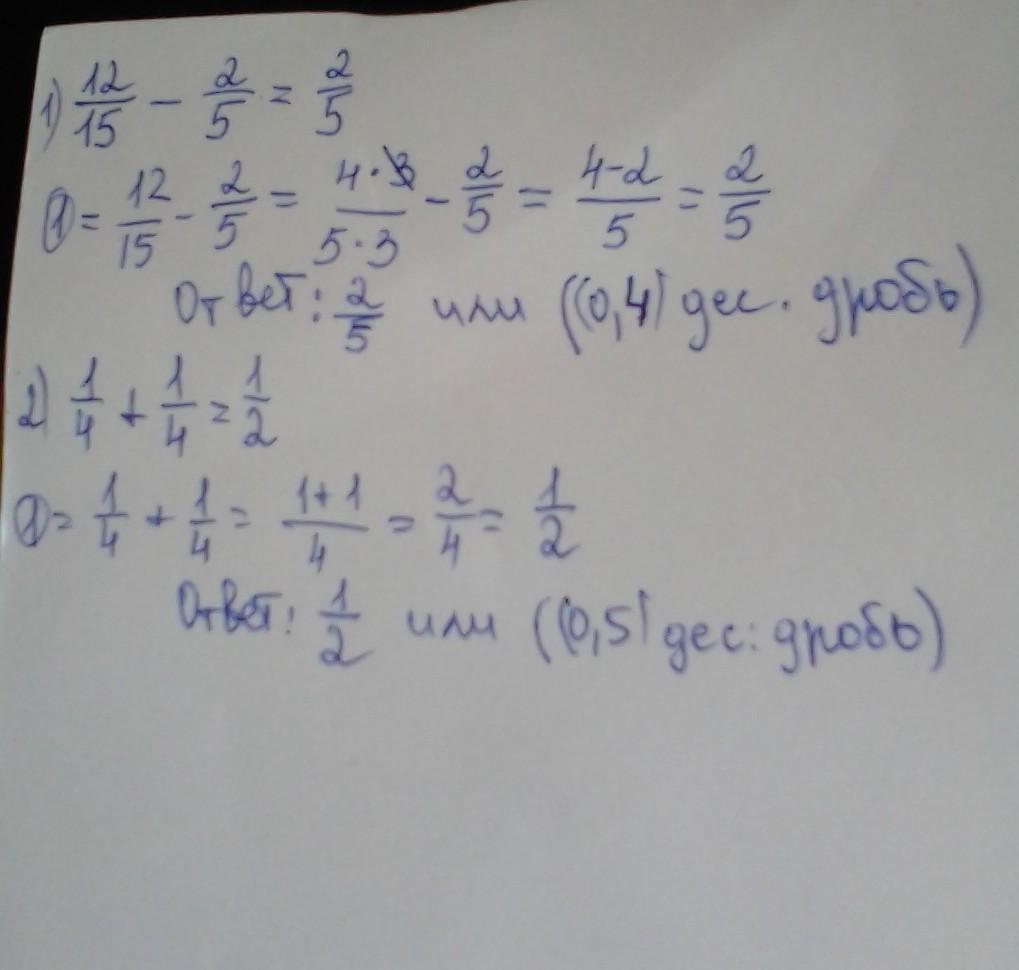 1) 12/15 - 2/5 = 2/5
① = 12/15 - 2/5 = 4·3/5·3 - 2/5 = 4-2/5 = 2/5
Ответ: 2/5 или ((0,4| дес. дробь)
2) 1/4 + 1/4 = 1/2
= 1/4 + 1/4 = 1+1/4 = 2/4 = 1/2
Ответ: 1/2 или ((0,5| дес: дробь)